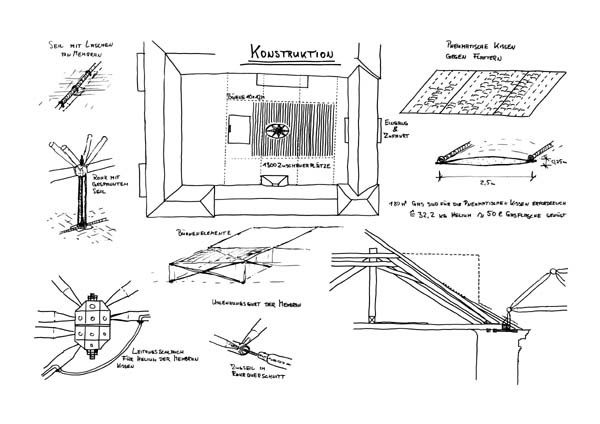 KONSTRUKTION
SEIL MIT LASCHEN
VON MEMBRAN
PNEUMATISCHE KISSEN
GEGEN FLATTERN
BÜHNE 10x12m
1300 ZUSCHAUERPLÄTZE
EINGANG
&
ZUFAHRT
ROHR MIT
GESPANNTEM
SEIL
0,25m
2,5m
180m³ GAS SIND FÜR DIE PNEUMATISCHEN KISSEN ERFORDERLICH
32,2 kg HELIUM
50 l GASFLASCHE GEFÜLLT
BÜHNENELEMENTE
UMLENKUNGSGURT DER MEMBRAN
LEITUNGSSCHLAUCH
FÜR HELIUM DER MEMBRAN
KISSEN
ZUGSEIL IM
ROHRQUERSCHNITT